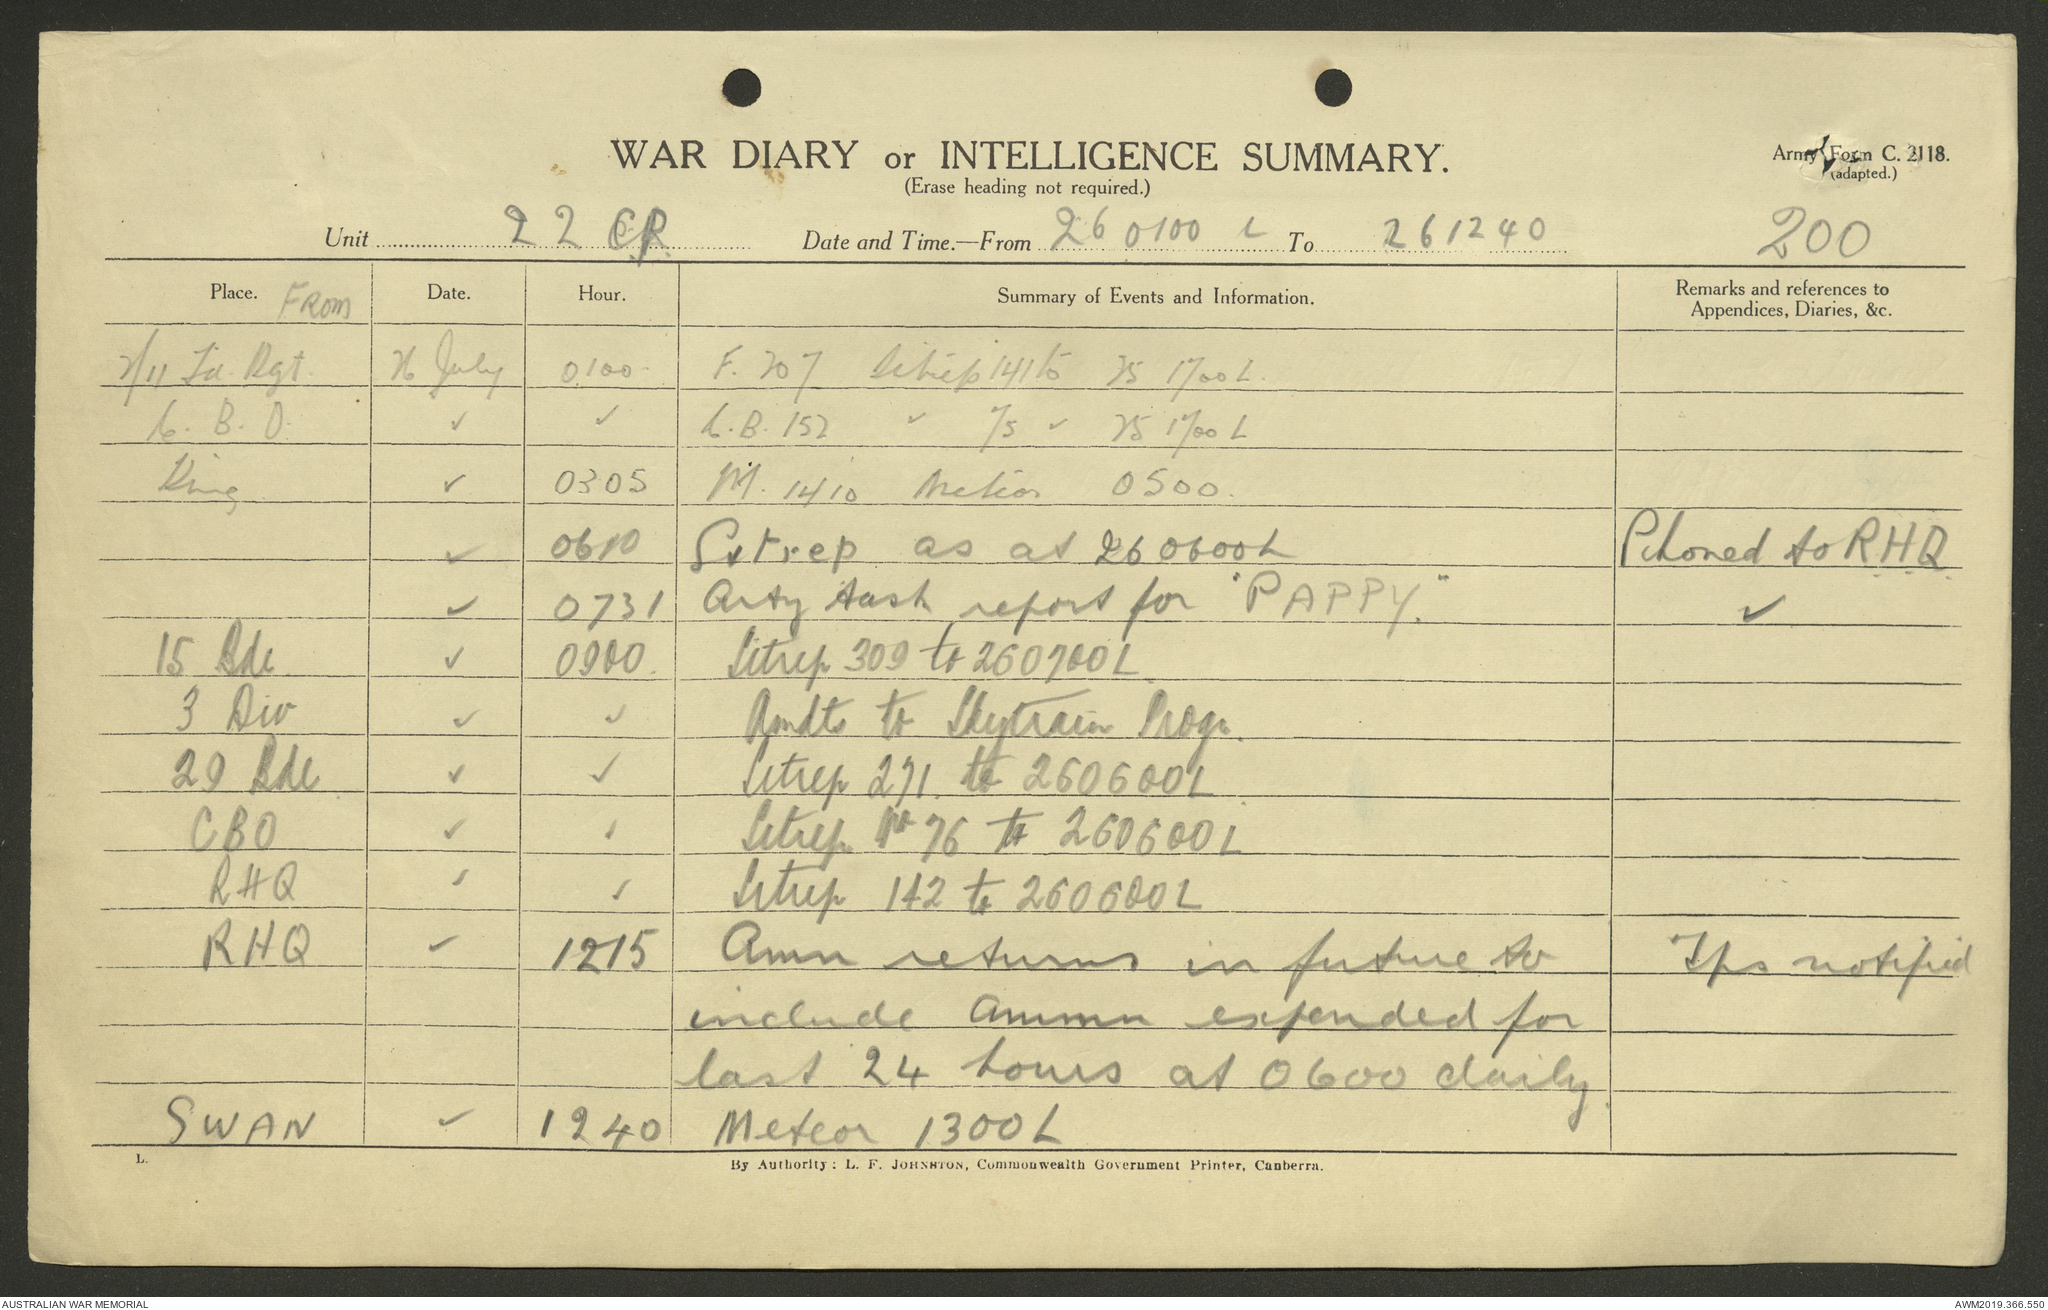 WAR DIARY or INTELLIGENCE SUMMARY.
Army Form C. 2118.
(Erase heading not required.)
(adapted.)
Unit 22 CR Date and Time.—From 26 0100 L To 261240 200
Place. FROM Date. Hour. Summary of Events and Information. Remarks and references to Appendices, Diaries, &c.
2/11 Fd. Rgt. 26 July 0100 F. 207 Sitrep 141 to 25 1700 L.
C. B. O. ✓ ✓ C.B. 152 ✓ 75 ✓ 25 1700 L
King ✓ 0305 M. 1410 Meteor 0500.
✓ 0610 Sitrep as at 260600L Phoned to R.H.Q.
✓ 0731 Arty task report for "PAPPY." ✓
15 Bde ✓ 0900. Sitrep 309 to 260700L
3 Div ✓ ✓ Amdts to Skytrain Progm.
29 Bde ✓ ✓ Sitrep 271. to 260600L
CBO ✓ ✓ Sitrep No 76 to 260600L
RHQ ✓ ✓ Sitrep 142 to 260600L
RHQ ✓ 1215 Amn returns in future to Tps notified
include Ammn expended for
last 24 hours at 0600 daily.
SWAN ✓ 1240 Meteor 1300L
L. By Authority: L. F. JOHNSTON, Commonwealth Government Printer, Canberra.
AUSTRALIAN WAR MEMORIAL AWM2019.366.550